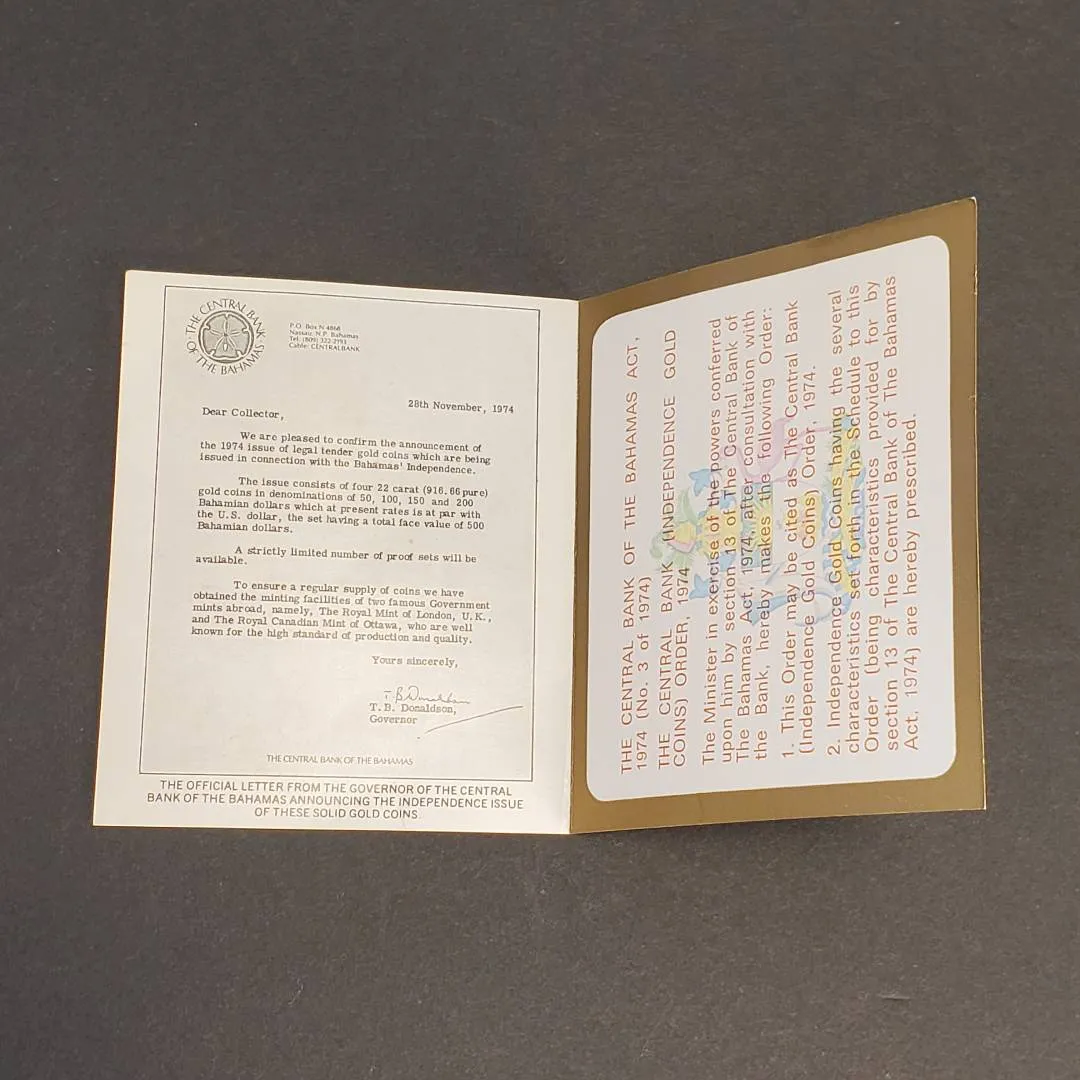 THE CENTRAL BANK OF THE BAHAMAS
P.O. Box N 4868
Nassau, N.P. Bahamas
Tel. (809) 322-2193
Cable: CENTRALBANK
28th November, 1974
Dear Collector,
We are pleased to confirm the announcement of
the 1974 issue of legal tender gold coins which are being
issued in connection with the Bahamas' Independence.
The issue consists of four 22 carat (916.66 pure)
gold coins in denominations of 50, 100, 150 and 200
Bahamian dollars which at present rates is at par with
the U.S. dollar, the set having a total face value of 500
Bahamian dollars.
A strictly limited number of proof sets will be
available.
To ensure a regular supply of coins we have
obtained the minting facilities of two famous Government
mints abroad, namely, The Royal Mint of London, U.K.,
and The Royal Canadian Mint of Ottawa, who are well
known for the high standard of production and quality.
Yours sincerely,
T B Donaldson
T. B. Donaldson,
Governor
THE CENTRAL BANK OF THE BAHAMAS
THE OFFICIAL LETTER FROM THE GOVERNOR OF THE CENTRAL
BANK OF THE BAHAMAS ANNOUNCING THE INDEPENDENCE ISSUE
OF THESE SOLID GOLD COINS.
THE CENTRAL BANK OF THE BAHAMAS ACT,
1974 (No. 3 of 1974)
THE CENTRAL BANK (INDEPENDENCE GOLD
COINS) ORDER, 1974
The Minister in exercise of the powers conferred
upon him by section 13 of The Central Bank of
The Bahamas Act, 1974, after consultation with
the Bank, hereby makes the following Order:
1. This Order may be cited as The Central Bank
(Independence Gold Coins) Order, 1974.
2. Independence Gold Coins having the several
characteristics set forth in the Schedule to this
Order (being characteristics provided for by
section 13 of The Central Bank of The Bahamas
Act, 1974) are hereby prescribed.